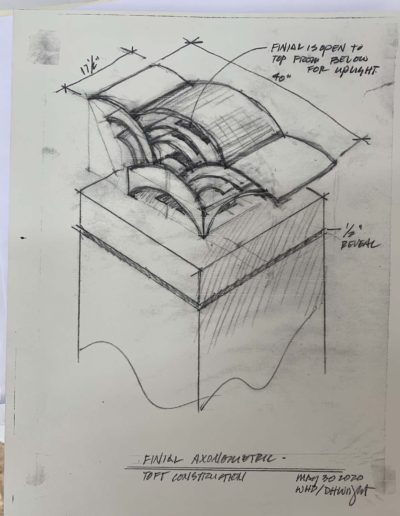 FINIAL IS OPEN TO
TOP FROM BELOW
FOR UPLIGHT.
40"
1/2"
REVEAL
FINIAL AXONOMETRIC -
TOFT CONSTRUCTION
MAY 30 2020
WHD/DHWright